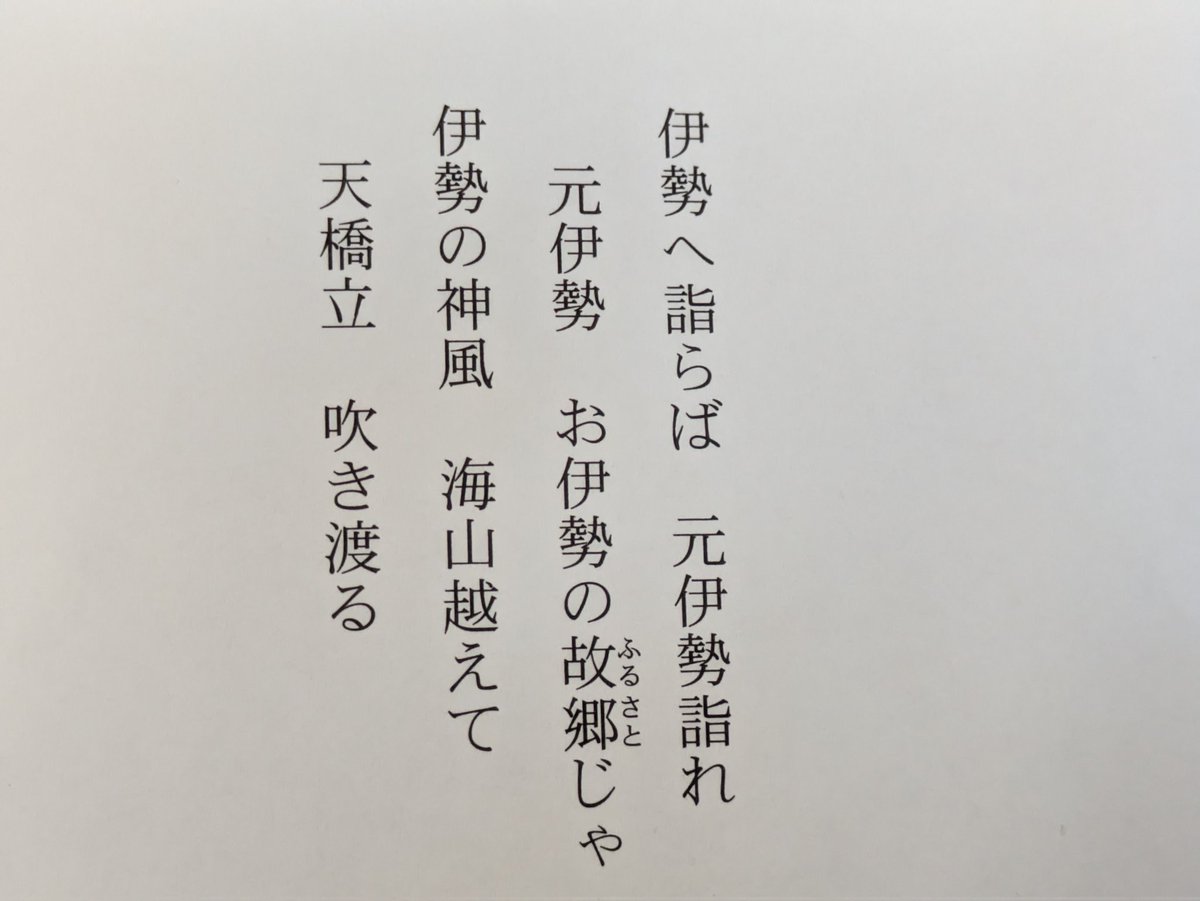 伊勢へ詣らば　元伊勢詣れ
元伊勢　お伊勢の故郷じゃ
ふるさと
伊勢の神風　海山越えて
天橋立　吹き渡る